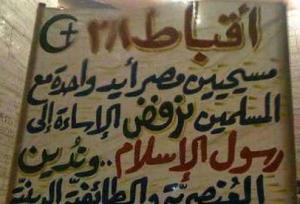 أقباط ٣٨
مسيحيين مصر أيد واحدة مع
المسلمين نرفض الإساءة إلى
رسول الإسلام .. وندين
العنصرية والطائفية الدينية